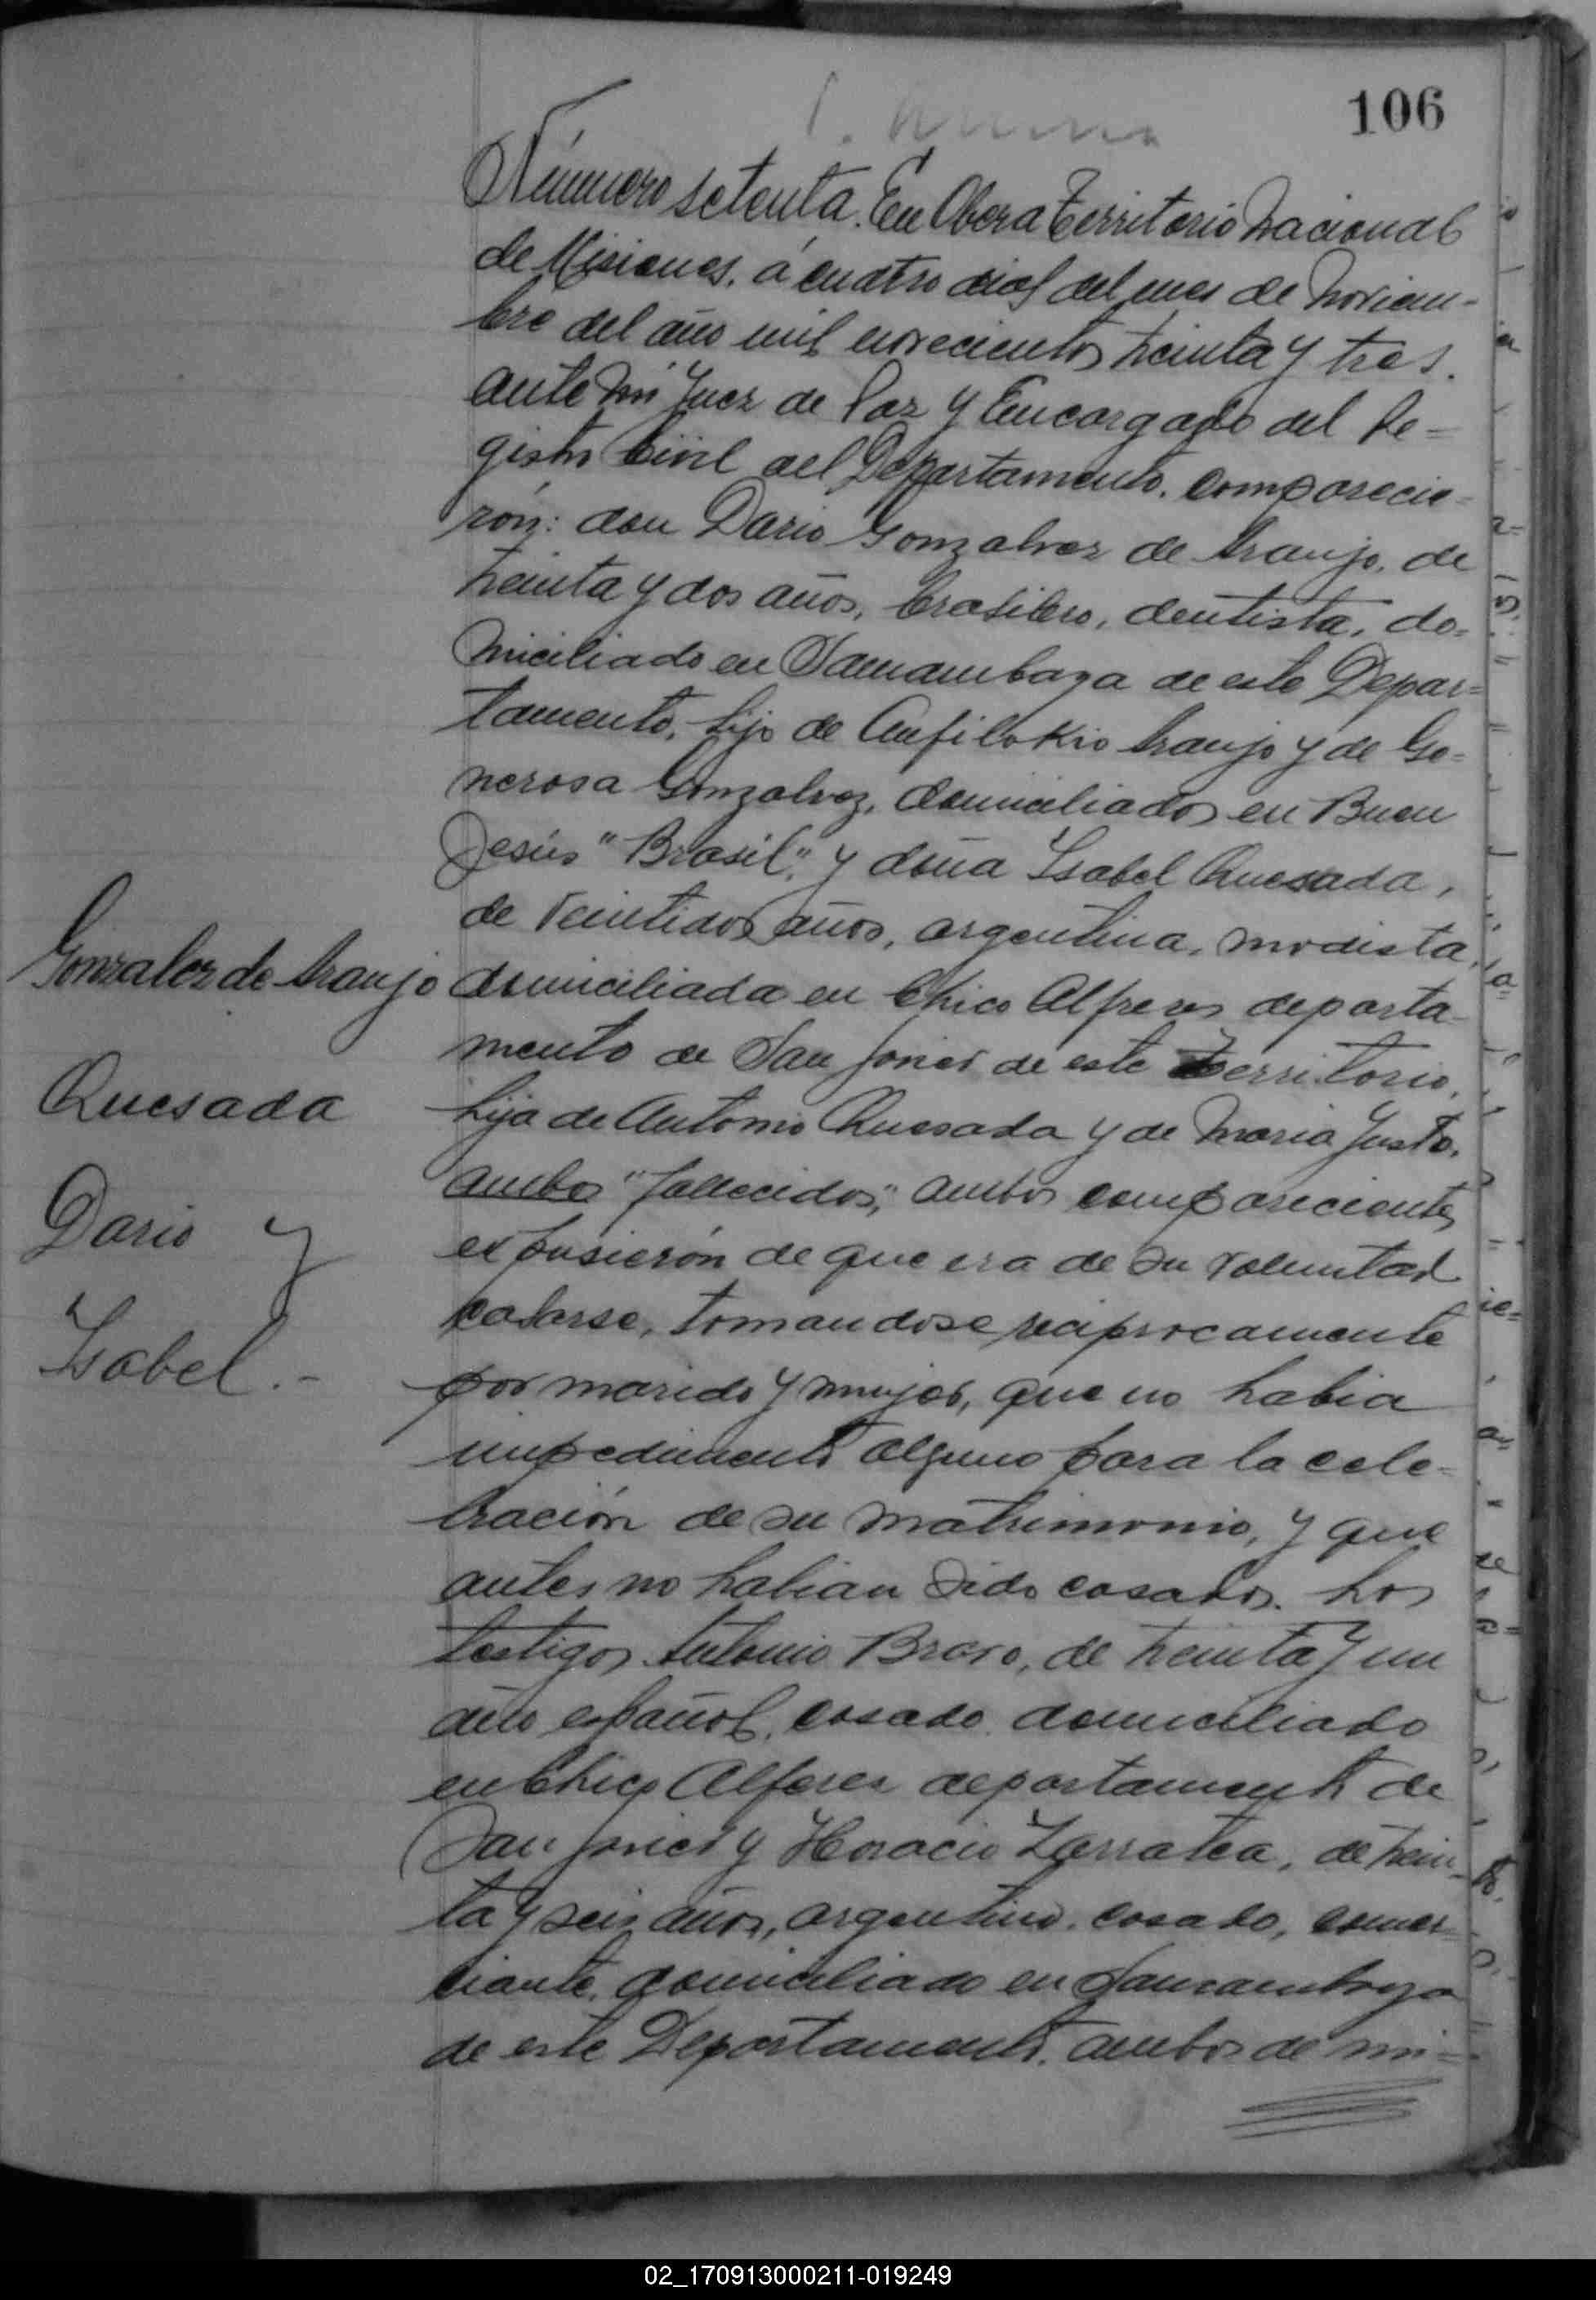 106
Número setenta. En Obera Territorio Nacional
de Misiones, á cuatro dias del mes de Noviem-
bre del año mil novecientos treinta y tres.
ante mi Juez de Paz y Encargado del Re=
gistro Civil del Departamento, comparecie-
rón: don Dario Gonzalvez de Araujo, de
treinta y dos años, brasilero, dentista, do=
miciliado en Samambaya de este Depar=
tamento, hijo de Anfilokio Araujo y de Ge=
nerosa Gonzalvez, domiciliados en Buen
Jesús "Brasil", y doña Ysabel Quesada,
de veintidos años, argentina, modista,
domiciliada en Chico Alferes departa-
mento de San Javier de este Territorio,
hija de Antonio Quesada y de Maria Justo,
ambos "fallecidos", ambos comparecientes
expusierón de que era de su voluntad
casarse, tomandose reciprocamente
por marido y mujer, que no habia
impedimento alguno para la cele-
bración de su matrimonio, y que
antes no habian sido casados. Los
testigos Antonio Bravo, de treinta y un
año español, casado, domiciliado
en Chico Alferes departamento de
San Javier y Horacio Zarratea, de trein-
ta y seis años, argentino, casado, comer-
ciante, domiciliado en Samambaya
de este Departamento, ambos de mi=
Gonzalez de Araujo
Quesada
Dario y
Ysabel.-
02_170913000211-019249